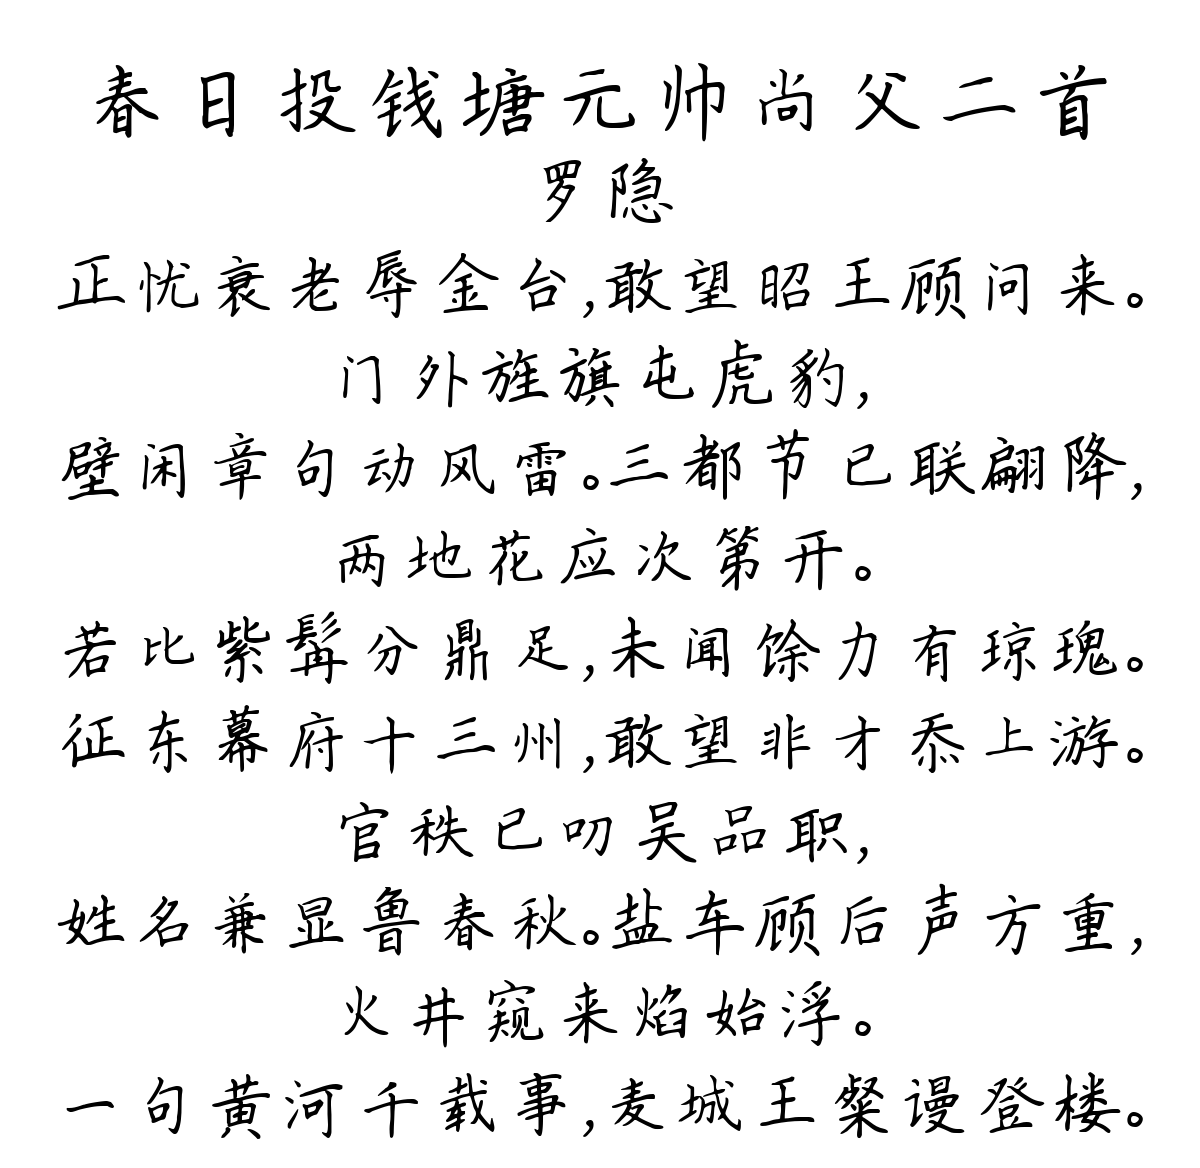 春日投钱塘元帅尚父二首
罗隐
正忧衰老辱金台,敢望昭王顾问来。
门外旌旗屯虎豹,
壁闲章句动风雷。三都节已联翩降,
两地花应次第开。
若比紫髯分鼎足,未闻馀力有琼瑰。
征东幕府十三州,敢望非才忝上游。
官秩已叨吴品职,
姓名兼显鲁春秋。盐车顾后声方重,
火井窥来焰始浮。
一句黄河千载事,麦城王粲谩登楼。